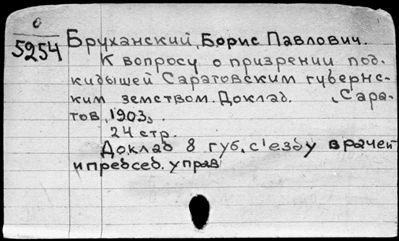 О
5254
Бруханский, Борис Павлович.
К вопросу о призрении под-
кидышей Саратовским губернс-
ким земством. Доклад. , Сара-
тов, 1903.
24 стр.
Доклад 8 губ. с'езду врачей
и председ. управ